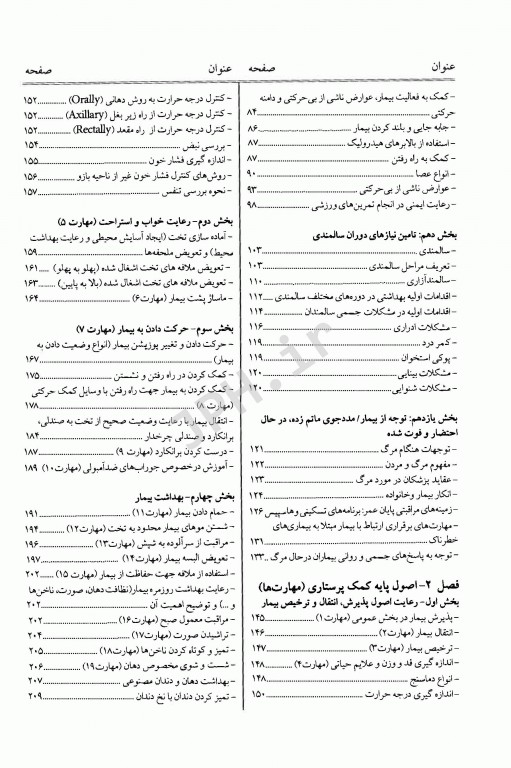 عنوان صفحه
- کمک به فعالیت بیمار، عوارض ناشی از بی‌حرکتی و دامنه
حرکتی ۸۴
- جابه جایی و بلند کردن بیمار ۸۶
- استفاده از بالابرهای هیدرولیک ۸۷
- کمک به راه رفتن ۸۷
- انواع عصا ۹۰
- عوارض ناشی از بی‌حرکتی ۹۳
- رعایت ایمنی در انجام تمرین‌های ورزشی ۹۸
بخش دهم: تامین نیازهای دوران سالمندی
- سالمندی ۱۰۳
- تعریف مراحل سالمندی ۱۰۳
- سالمندآزاری ۱۱۰
- اقدامات اولیه بهداشتی در دوره‌های مختلف سالمندی ۱۱۲
- اقدامات اولیه در مشکلات جسمی سالمندان ۱۱۴
- مشکلات ادراری ۱۱۶
- کمر درد ۱۱۹
- پوکی استخوان ۱۱۹
- مشکلات بینایی ۱۲۰
- مشکلات شنوایی ۱۲۰
بخش یازدهم: توجه از بیمار/ مددجوی ماتم زده، در حال
احتضار و فوت شده
- توجهات هنگام مرگ ۱۲۱
- مفهوم مرگ و مردن ۱۲۲
- عقاید پزشکان در مورد مرگ ۱۲۳
- انکار بیمار وخانواده ۱۲۴
- زمینه‌های مراقبتی پایان عمر: برنامه‌های تسکینی وهاسپیس ۱۲۶
- مهارت‌های برقراری ارتباط با بیمار مبتلا به بیماری‌های
خطرناک ۱۳۱
- توجه به پاسخ‌های جسمی و روانی بیماران درحال مرگ ۱۳۳
فصل ۲- اصول پایه کمک پرستاری (مهارت‌ها)
بخش اول- رعایت اصول پذیرش، انتقال و ترخیص بیمار
- پذیرش بیمار در بخش عمومی (مهارت۱) ۱۴۵
- انتقال بیمار (مهارت۲) ۱۴۶
- ترخیص بیمار (مهارت۳) ۱۴۷
- اندازه گیری قد و وزن و علایم حیاتی (مهارت۴) ۱۴۸
- انواع دماسنج ۱۴۸
- اندازه گیری درجه حرارت ۱۵۰
عنوان صفحه
- کنترل درجه حرارت به روش دهانی (Orally) ۱۵۲
- کنترل درجه حرارت از راه زیر بغل (Axillary) ۱۵۲
- کنترل درجه حرارت از راه مقعد (Rectally) ۱۵۲
- بررسی نبض ۱۵۴
- اندازه گیری فشار خون ۱۵۵
- روش‌های کنترل فشار خون غیر از ناحیه بازو ۱۵۶
- نحوه بررسی تنفس ۱۵۷
بخش دوم- رعایت خواب و استراحت (مهارت ۵)
- آماده سازی تخت (ایجاد آسایش محیطی و رعایت بهداشت
محیط) و تعویض ملحفه‌ها ۱۵۹
- تعویض ملافه های تخت اشغال شده (پهلو به پهلو) ۱۶۱
- تعویض ملافه های تخت اشغال شده (بالا به پایین) ۱۶۳
- ماساژ پشت بیمار (مهارت۶) ۱۶۴
بخش سوم- حرکت دادن به بیمار (مهارت ۷)
- حرکت دادن و تغییر پوزیشن بیمار (انواع وضعیت دادن به
بیمار) ۱۶۷
- کمک کردن در راه رفتن و نشستن ۱۷۵
- کمک کردن به بیمار جهت راه رفتن با وسایل کمک حرکتی
(مهارت ۸) ۱۷۸
- انتقال بیمار با رعایت وضعیت صحیح از تخت به صندلی،
برانکارد و صندلی چرخدار ۱۸۴
- درست کردن برانکارد (مهارت ۹) ۱۸۷
- آموزش درخصوص جوراب‌های ضدآمبولی (مهارت۱۰) ۱۸۹
بخش چهارم- بهداشت بیمار
- حمام دادن بیمار (مهارت۱۱) ۱۹۱
- شستن موهای بیمار محدود به تخت (مهارت۱۲) ۱۹۴
- مراقبت از سرآلوده به شپش (مهارت۱۳) ۱۹۶
- تعویض البسه بیمار (مهارت۱۴) ۱۹۷
- استفاده از ملافه جهت حفاظت از بیمار (مهارت ۱۵) ۲۰۲
- رعایت بهداشت روزمره بیمار(نظافت دهان، صورت، ناخن‌ها
و ...) و توضیح اهمیت آن ۲۰۲
- مراقبت معمول صبح (مهارت۱۶) ۲۰۲
- تراشیدن صورت (مهارت۱۷) ۲۰۴
- تمیز و کوتاه کردن ناخن‌ها (مهارت۱۸) ۲۰۵
- شست و شوی مخصوص دهان (مهارت۱۹) ۲۰۶
- بهداشت دهان و دندان مصنوعی ۲۰۷
- تمیز کردن دندان با نخ دندان ۲۰۹